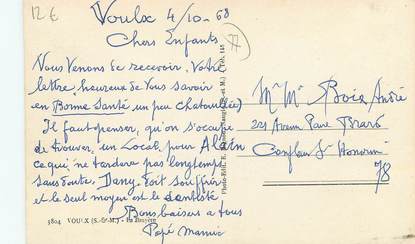 12 €
Voulx 4/10-68
77
Chers Enfants
Nous Venons de recevoir, Votre
lettre, heureux de Vous savoir
en Bonne Santé un peu chatouillée)
Il faut penser, qu'on s'occupe
de trouver, un Local, pour Alain
ce qui, ne tardera pas longtemps
sans doute. Dany, doit souffrir
et le seul moyen est le dentiste
Bons baisers a tous
Pépé Mamie
Mr Mme Bois André
221 Avenue
Conflans Ste Honorine
78
5804 VOULX (S.-&-M.) - La Bruyère